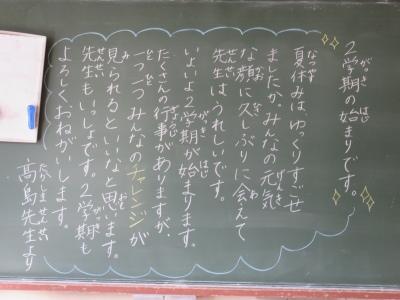 2学期の始まりです。
夏休みはゆっくりすごせ
ましたか。みんなの元気
な顔に久しぶりに会えて
先生はうれしいです。
いよいよ2学期が始まります。
たくさんの行事がありますが、
一つ一つみんなのチャレンジが
見られるといいなと思います。
先生もいっしょです。2学期も
よろしくおねがいします。
高島先生より